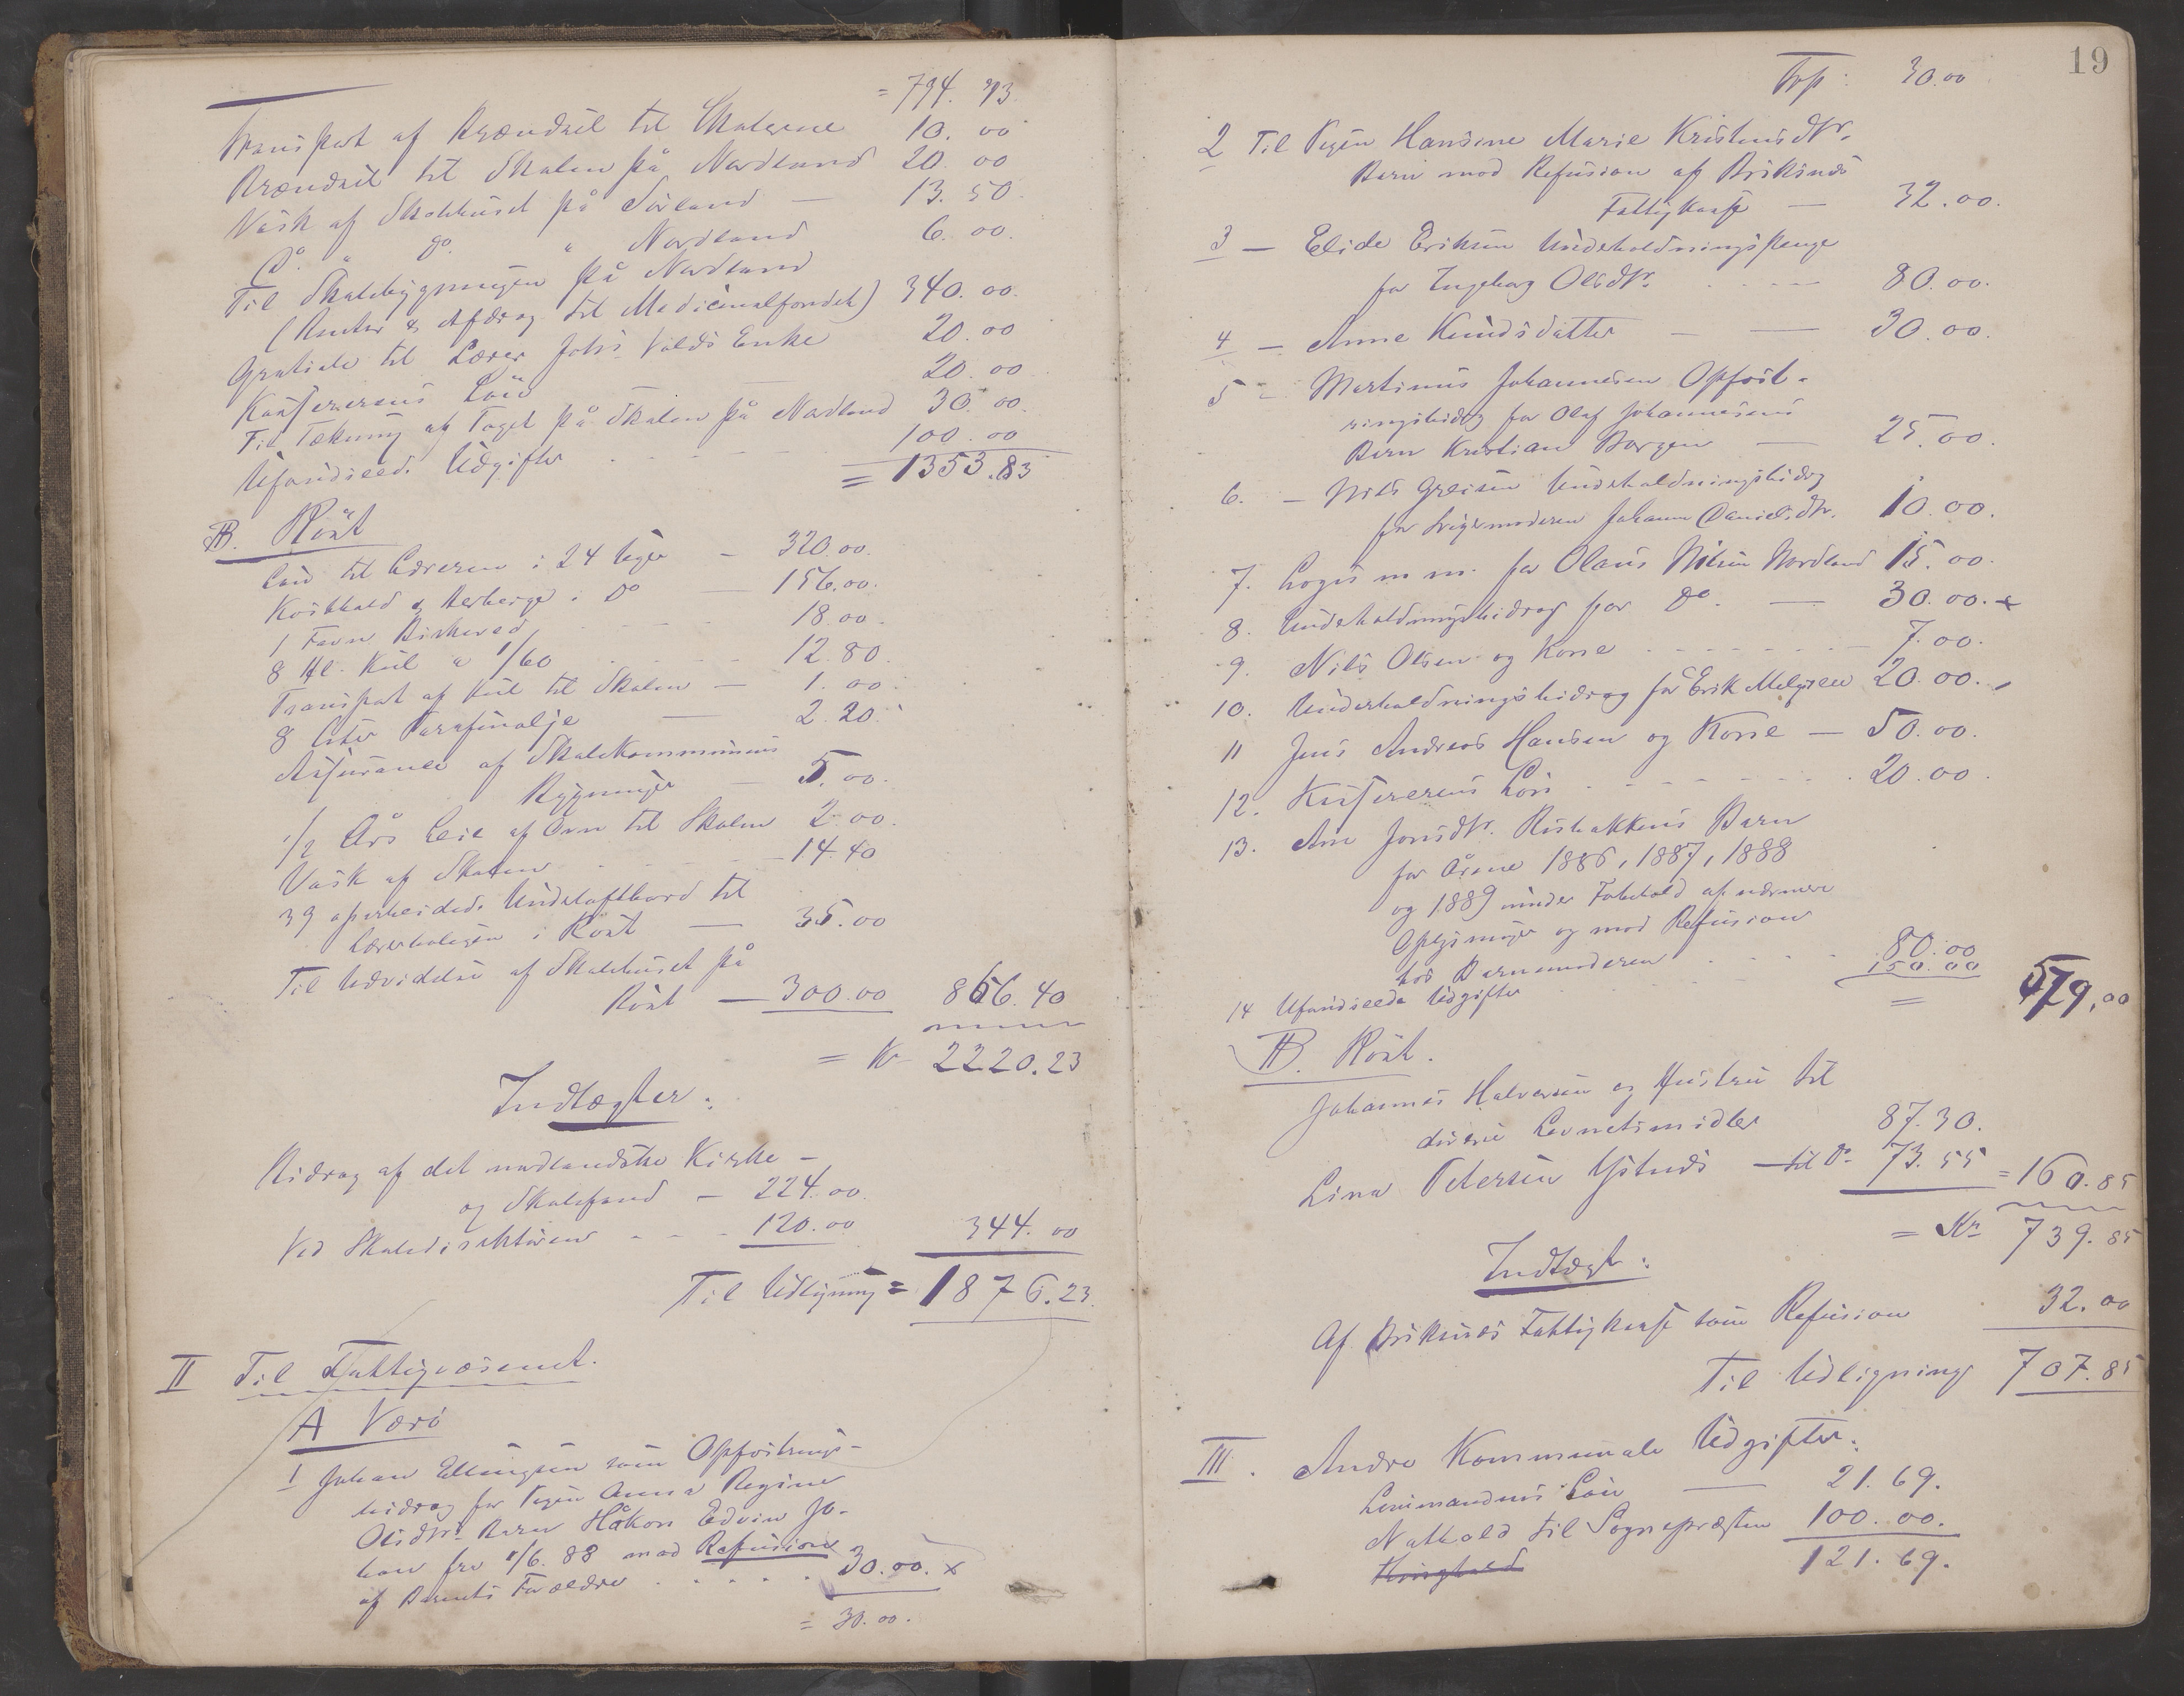 = 794. 33
Transport af Brændsel til Skolerne 10. 00
Brændsel til Skolen på Nordland 20. 00
Vask af Skolehuset på Sørland — 13. 50
Do. " do. " Nordland 6. 00.
Til Skolebygningen på Nordland
(Renter & Afdrag til Medicinalfondet) 340. 00.
Gratiale til Lærer Johs Volds Enke 20. 00
Kassererens Løn — 20. 00
Til Tækning af Taget på Skolen på Nordland 30. 00.
Uforudseede Udgifter 100. 00
= 1353.83
B. Röst
Løn til Læreren i 24 Uger — 320.00.
Kosthold & Herberge i do — 156.00.
1 Favn Birkeved, 18.00.
8 Hl. Kul a 1/60 12.80.
Transport af Kul til Skolen — 1.00
8 Liter Parafinolje — 2.20.
Assurance af Skolekommunens
Bygninger — 5.00.
1/2 Års Leie af Ovn til Skolen 2.00.
Vask af Skolen 14.40
39 oparbeidede Underloftbord til
Lærerboligen i Röst — 35.00
Til Udvidelse af Skolehuset på
Röst — 300.00 866.40
= Kr 2220.23
Indtægter:
Bidrag af det nordlandske Kirke-
og Skolefond — 224.00.
Ved Skoledirektøren - - - 120.00 344.00
Til Udligning = 1876.23.
II Til Fattigvæsenet.
A Værö
1 Johan Ellingsen som Opfostrings-
bidrag for Pigen Anna Regine
Olsdtr. Barn Håkon Edvin Jo-
han fra 1/6. 88 mod Refusion
af Barnets Forældre . . . . . 30.00. x
= 30.00.
19
Trsp: 30.00
2 Til Pigen Hansine Marie Kristensdtr.
Barn mod Refusion af Buksnes
Fattigkasse — 32.00.
3 — Elide Eriksen Underholdningspenge
for Ingeborg Olsdtr. 80.00.
4 — Anne Knudsdatter — — 30.00.
5 - Martinus Johannesen Opfost-
ringsbidrag for Olaf Johannesens
Barn Kristian Borgen — 25.00.
6. — Nils Greisen Underholdningsbidrag
for Svigermoderen Johanna Danielsdtr. 10.00.
7. Logis m m. for Olaus Nilsen Nordland 15.00.
8. Underholdningsbidrag for do. — 30.00. x
9. Nils Olsen og Kone - - - - - - 7.00.
10. Underholdningsbidrag for Erik 20.00.
11 Jens Andreas Hansen og Kone — 50.00.
12. Kassererens Løn - - - - - 20.00.
13. Ane Jonsdtr. Barn
for Årene 1886, 1887, 1888
og 1889 under Forbehold af nærmere
Oplysninger og mod Refusion
hos Barnemoderen . . . . 80.00
14 Uforudseede Udgifter 150.00
= 579,00
B. Röst.
Johannes Halvorsen og Hustru til
diverse Levnetsmidler 87.30.
Lina Petersen — til do 73.55 = 160.85
= Kr 739.85
Indtægt:
Af Buksnes Fattigkasse som Refusion 32.00
Til Udligning 707.85
III. Andre Kommunale Udgifter.
Lensmandens Løn — 21.69.
Nathold til Sognepræsten 100.00.
121.69.